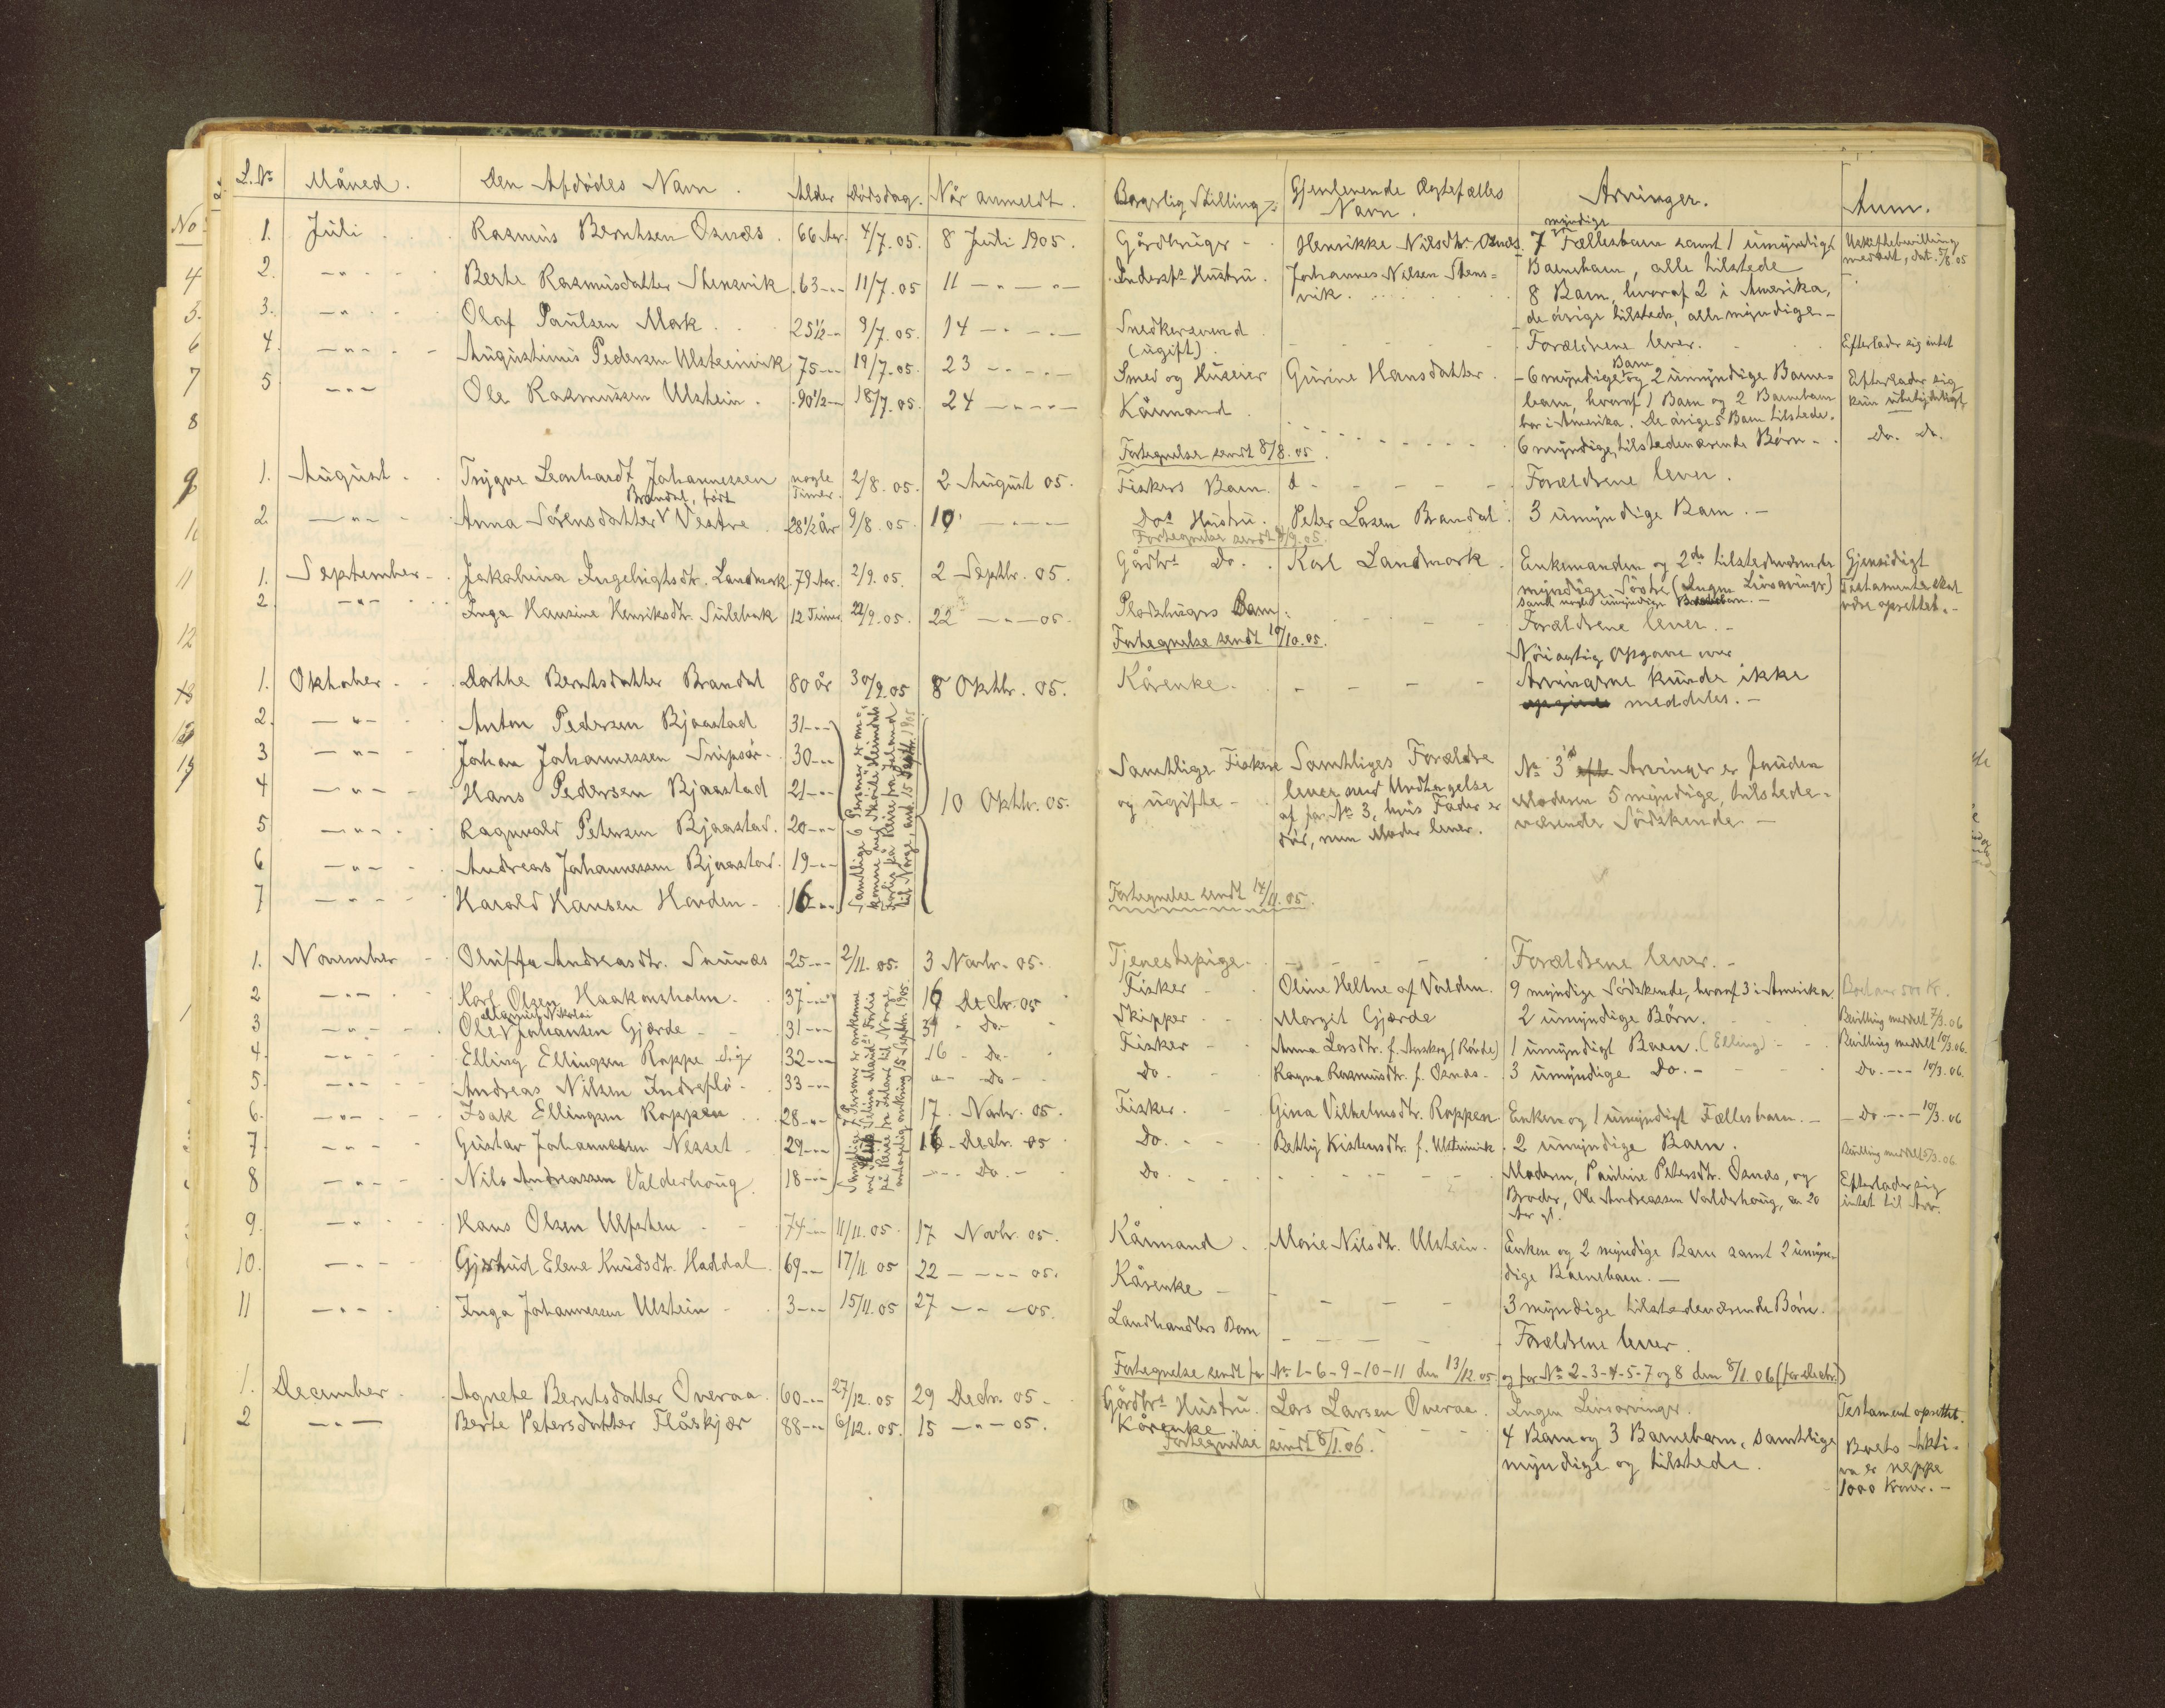 L.No Måned. Den Afdödes Navn. Alder Dödsdag. Når anmeldt. Borgerlig Stilling. Gjenlevende Ægtefælles Navn. Arvinger. Anm.
1. Juli Rasmus Berntsen Osnæs. 66 Aar. 4/7.05. 8 Juli 1905. Gårdbruger - Henrikke Nilsdtr. Osnæs. 7 myndige Fællesbarn samt 1 umyndigt Barnebarn, alle tilstede Uskiftebevilling meddelt, dat. 5/8.05
2. -"- Berte Rasmusdatter Stensvik. 63-"- 11/7.05 11 -"- -"- Inderst's Hustru. Johannes Nilsen Stensvik. 8 Barn, hvoraf 2 i Amerika, de övrige tilstede, alle myndige-
3. -"- Olaf Paulsen Mork. 25½-"- 9/7.05. 14 -"- -"- Snedkersvend (ugift). Forældrene lever. Efterlader sig intet
4. -"- Augustinus Pedersen Ulsteinvik 75-"- 19/7.05. 23 -"- -"- Smed og Huseier Gurine Hansdatter. -6 myndige Barn og 2 umyndige Barnebarn, hvoraf 1 Barn og 2 Barnebarn bor i Amerika. De övrige 5 Barn tilstede. Efterlader sig kun ubetydeligt
5 -"- Ole Rasmussen Ulstein. 90½-"- 18/7.05. 24 -"- -"- Kårmand. 6 myndige, tilstedeværende Börn-. Do. Do.
Fortegnelse sendt 8/8.05.
1. August. Trygve Leonhardt Johannessen nogle Timer. 2/8.05. 2 August 05. Fiskers Barn. Forældrene lever.
2. -"- Anna Sörensdatter Brandal, född Vestre 28½ år 9/8.05 10 -"- Dos Hustru. Peter Larsen Brandal. 3 umyndige Barn.-
Fortegnelse sendt /9.05.
1. September. Jakobina Ingebrigtsdtr. Landmark. 79 Aar. 2/9.05. 2 Septbr. 05. Gårdbrs Do. Karl Landmark. Enkemanden og 2de tilstedeværende myndige Södre (Ingen Livsarvinger) samt nogle umyndige Gjensidigt Testamente skal være oprettet.-
2. -"- Inga Hansine Henriksdtr. Sulebak 12 Timer 22/9.05. 22 -"- 05. Pladsbrugers Barn. Forældrene lever.-
Fortegnelse sendt 10/10.05.
1. Oktober. Dorthe Berntsdatter Brandal 80 år 30/9.05 8 Oktbr. 05. Kårenke. Nöiagtig Opgave over Arvingerne kunde ikke meddeles.-
2. -"- Anton Pedersen Bjaastad 31-"-
3 -"- Johan Johannessen Snipsör. 30-"-
4 -"- Hans Pedersen Bjaastad 21-"-
5 -"- Ragnvald Petersen Bjaastad. 20-"-
6 -"- Andreas Johannessen Bjaastad. 19-"-
7 -"- Harald Hansen Hovden. 16-"-
Samtlige 6 Personer er omkomne med Sköite Heimdals Forlis på Reise fra Island til Norge, omk. 15 Septbr. 1905.
10 Oktbr. 05.
Samtlige Fiskere og ugifte-
Samtliges Forældre lever med Undtagelse af for No 3, hvis Fader er död, men Moder lever.
No 3's Arvinger er foruden Moderen 5 myndige, tilstedeværende Södskende-
Fortegnelse sendt 14/11.05.
1. November Oluffa Andreasdtr. Saunæs 25-"- 2/11.05. 3 Novbr. 05. Tjenestepige. Forældrene lever.-
2 -"- Karl Olsen Haakonsholm. 37-"- 16 Decbr. 05 Fisker Oline Heltne af Volden. 9 myndige Södskende, hvoraf 3 i Amerika. Boet over 500 Kr.
3 -"- Ole Magnus Nikolai Johansen Gjærde 31-"- 31 - Do- Skipper Margit Gjærde 2 umyndige Börn. Bevilling meddelt 7/3.06
4. -"- Elling Ellingsen Roppe 32-"- 16 - Do- Fisker Anna Larsdtr. f. Aaskog (Rövde) 1 umyndigt Barn. (Elling) Bevilling meddelt 10/3.06.
5. -"- Andreas Nilsen Indreflö. 33-"- "- Do- Do Ragna Rasmusdtr. f. Osnæs. 3 umyndige Do.- Do.-"- 10/3.06.
6. -"- Isak Ellingsen Roppen 28-"- 17. Novbr. 05. Fisker. Gina Vilhelmsdtr. Roppen Enken og 1 umyndigt Fællesbarn.- Do-"- 10/3.06
7 -"- Gustav Johannessen Nesset 29-"- 16 Decbr. 05 Do. Betty Kistensdtr. f. Ulsteinvik. 2 umyndige Barn. Bevilling meddelt 5/3.06
8 -"- Nils Andreassen Valderhoug. 18-"- -"- Do.- Do Moderen, Pauline Petersdtr. Osnæs, og Broder, Ole Andreassen Valderhoug, ca 20 Aar gl. Efterlader sig intet til Arv.
Samtlige 7 Personer er omkomne på Reise fra Island til Norge, antagelig omkring 15 Septbr. 1905.
9. -"- Hans Olsen Ulfsten 74-"- 11/11.05. 17 Novbr. 05. Kårmand. Marie Nilsdtr. Ulstein. Enken og 2 myndige Barn samt 2 umyndige Barnebarn.-
10. -"- Gjertrud Elene Knudsdtr. Haddal. 69-"- 17/11 05 22 -"- 05. Kårenke 3 myndige tilstedeværende Börn.
11 -"- Inga Johannessen Ulstein 3-"- 15/11.05 27 -"- 05. Landhandlers Barn Forældrene lever.
Fortegnelse sendt for No 1-6-9-10-11 den 13/12.05 og for No 2-3-4-5-7 og 8 den 8/1.06 (for Decbr.)
1. December. Agnete Berntsdatter Overaa. 60-"- 27/12.05 29 Decbr. 05. Gårdbrs Hustru. Lars Larsen Overaa. Ingen Livsarvinger. Testament oprettet.
2 -"- Berte Petersdatter Flåskjær 88-"- 6/12.05. 15 -"- 05. Kårenke 4 Barn og 3 Barnebarn, samtlige myndige og tilstede. Boets Aktiva er neppe 1000 Kroner.-
Fortegnelse sendt 8/1.06.